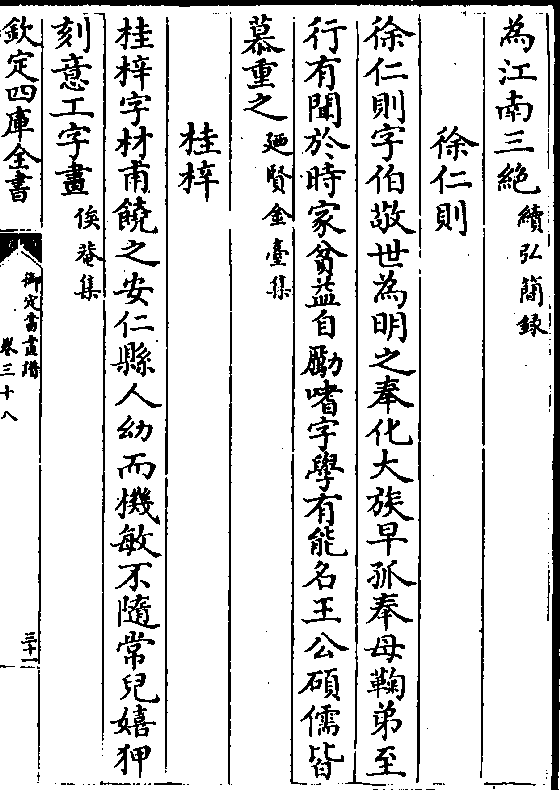 為江南三絶 續弘簡錄
徐仁則
徐仁則字伯敬世為明之奉化大族早孤奉母鞠弟至
行有聞於時家貧益自勵嗜字學有能名王公碩儒皆
慕重之 廼賢金臺集
桂梓
桂梓字材甫饒之安仁縣人幼而機敏不隨常兒嬉狎
刻意工字畫 俟菴集
欽定四庫全書
御定書畫譜
卷三十八
三十一